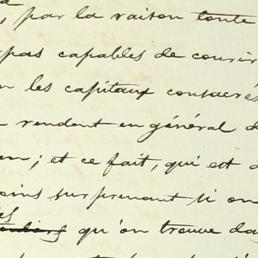 , par la raison toute
pas capables de courir
les capitaux consacrés
rendent en général d
; et ce fait, qui est d
oins surprenant si on
qu'on trouve da